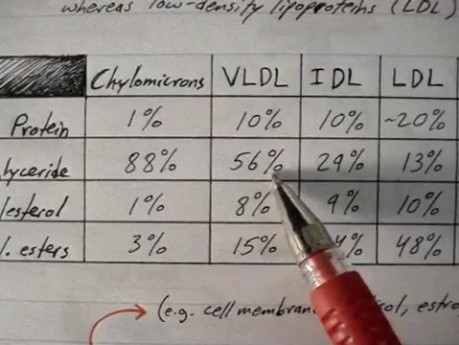 whereas low-density lipoproteins (LDL)
Chylomicrons VLDL IDL LDL
Protein 1% 10% 10% ~20%
lyceride 88% 56% 29% 13%
lesterol 1% 8% 9% 10%
. esters 3% 15% 48%
(e.g. cell membran